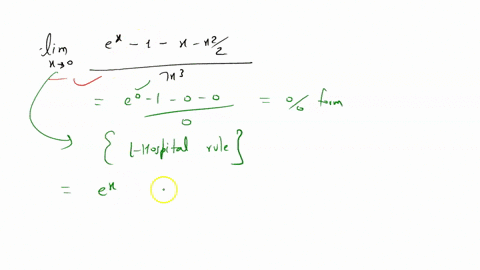 lim x→0 (e^x - 1 - x - x^2/2) / 7x^3
= (e^0 - 1 - 0 - 0) / 0 = 0/0 form
{ L-Hospital rule }
= e^x